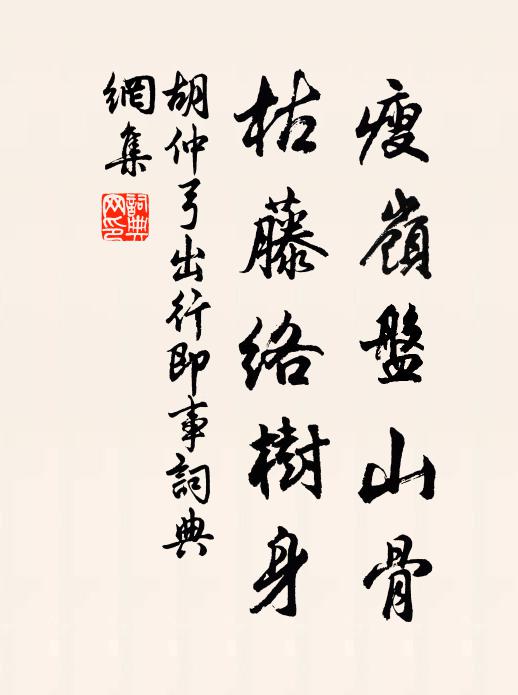 瘦嶺盤山骨
枯藤絡樹身
胡仲弓出行即事詞典
網集
詞典
网印